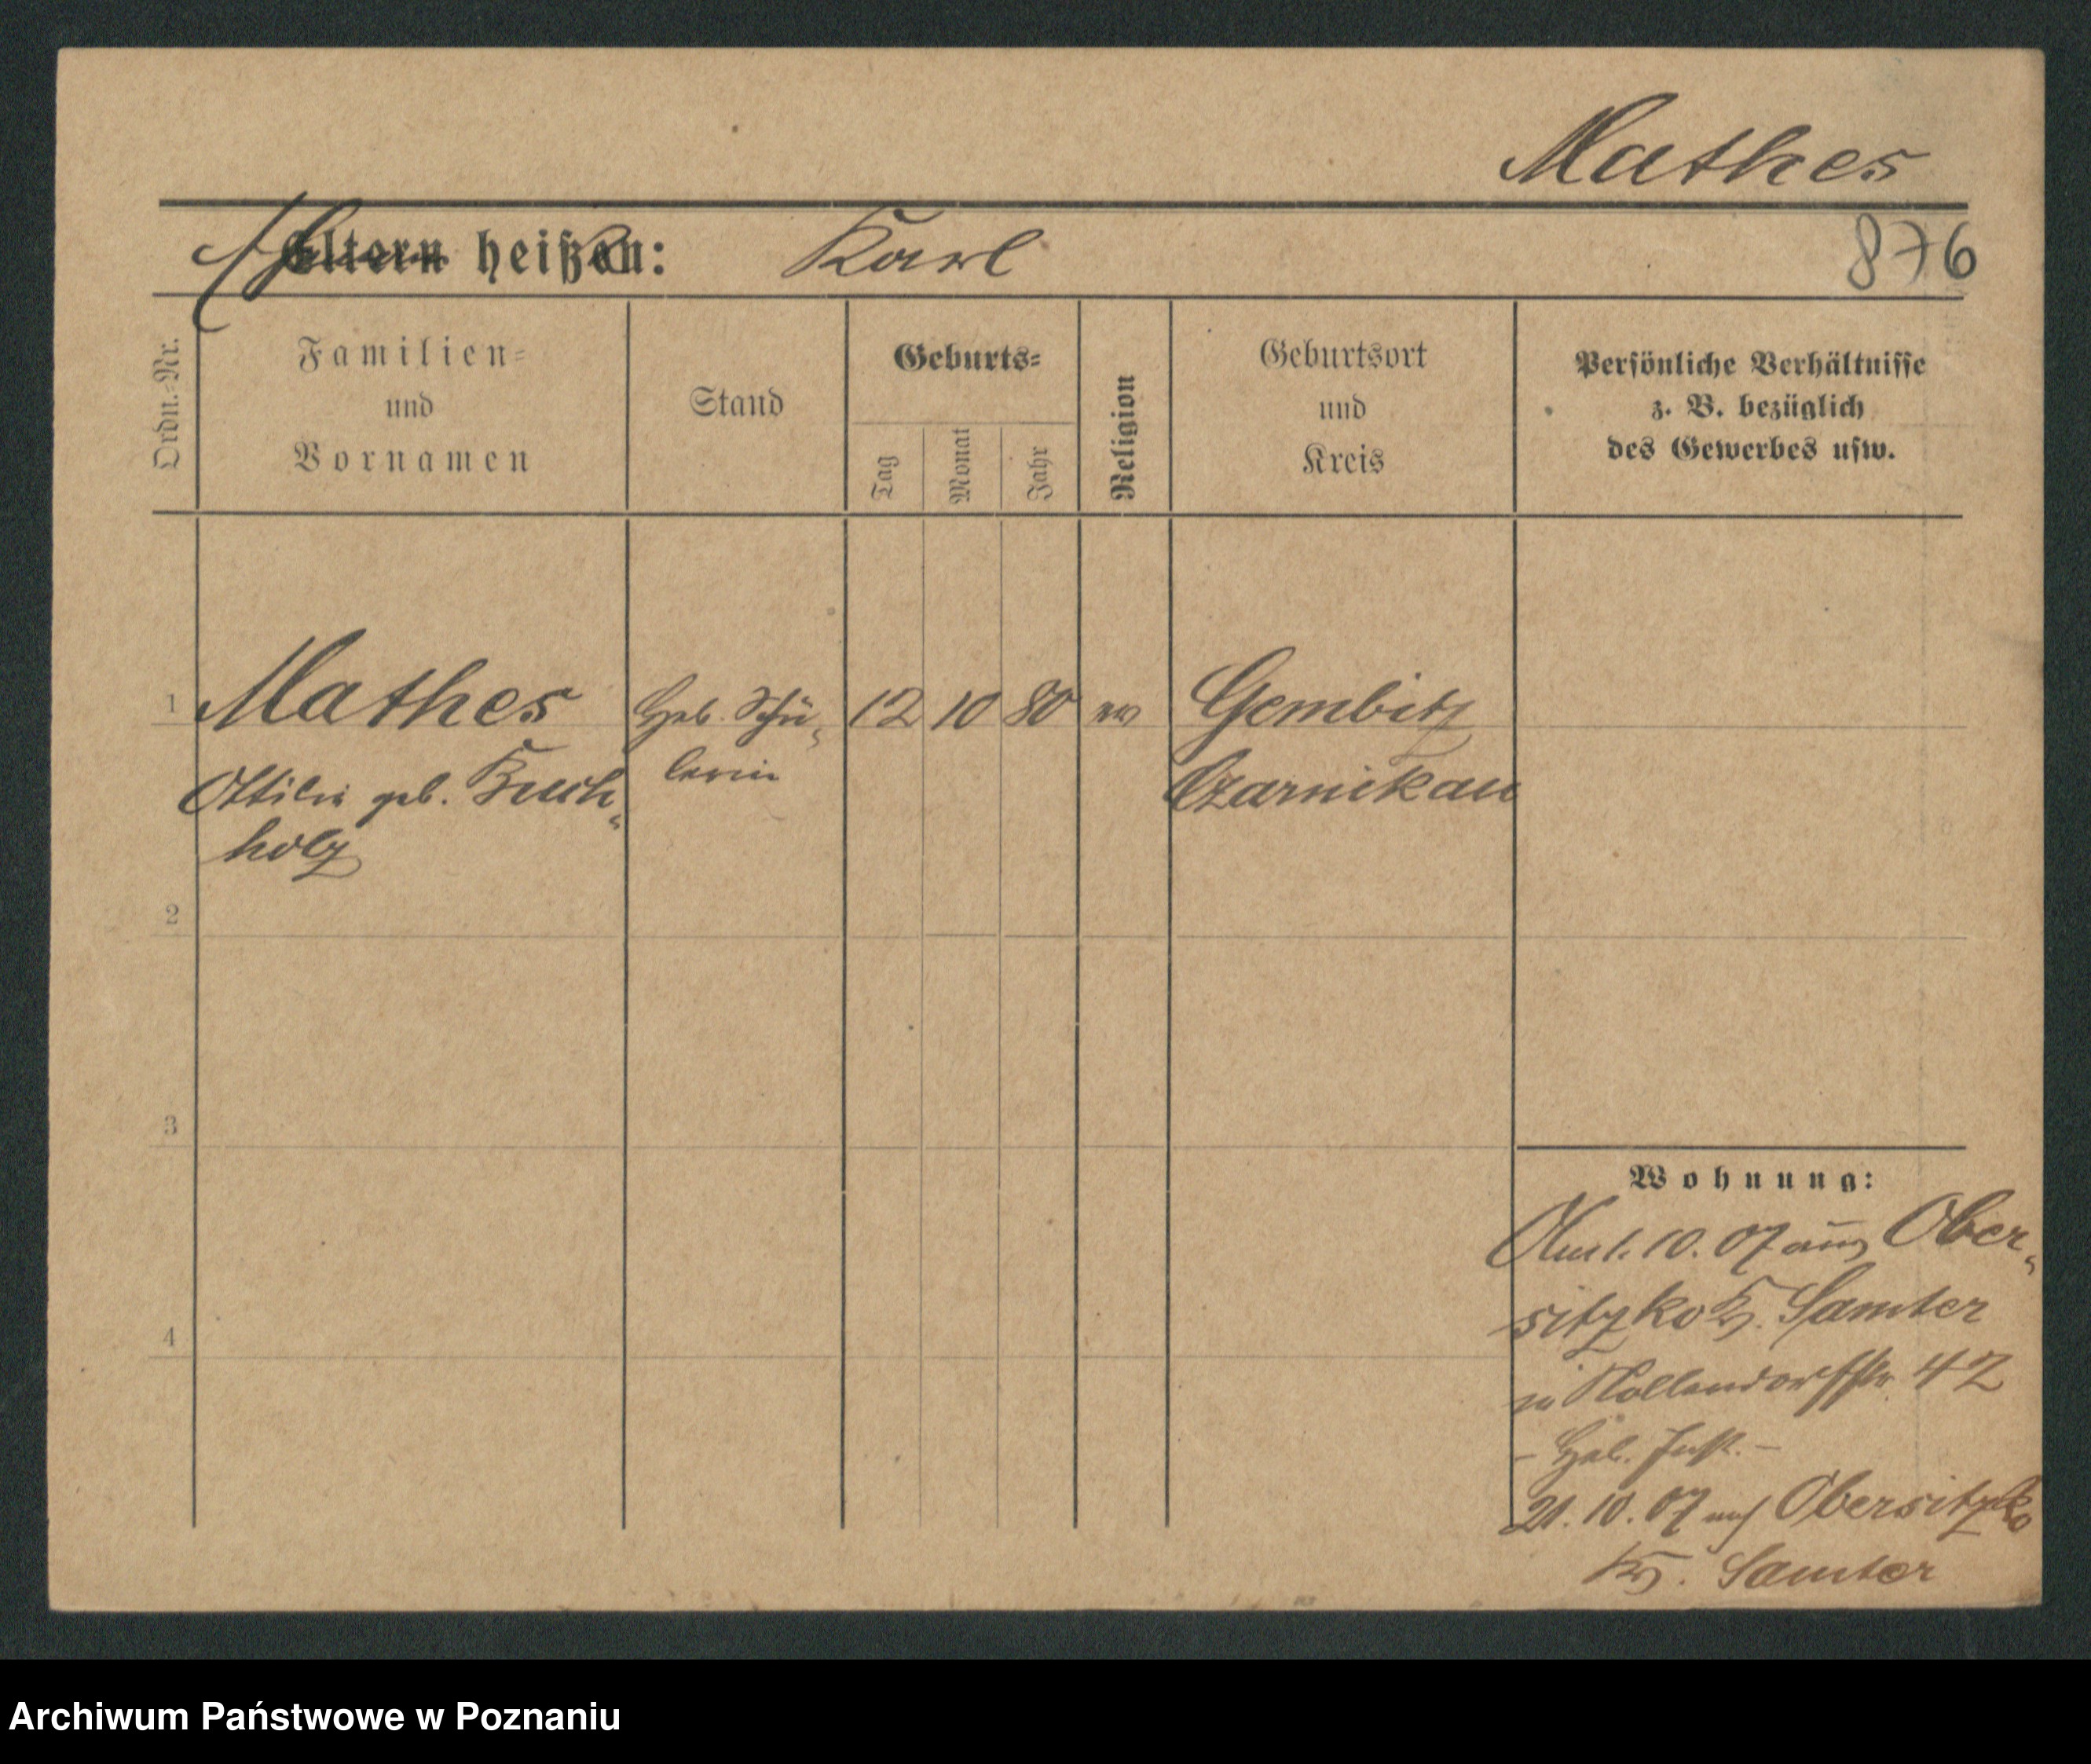 Mathes
Eltern heißen: Karl
876
Ordn.-Nr.
Familien-
und
Vornamen
Stand
Geburts-
Tag
Monat
Jahr
Religion
Geburtsort
und
Kreis
Persönliche Verhältnisse
z. B. bezüglich
des Gewerbes usw.
1 Mathes Heb. Schü- 12 10 80 ev Gembitz
Ottilie geb. Buch- lerin Czarnikau
holz
2
3
4
Wohnung:
10. 07 aus Ober-
sitzko Kr. Samter
in Nollendorfstr. 42
- Heb. Inst. -
21. 10. 07 nach Obersitzko
Kr. Samter
Archiwum Państwowe w Poznaniu